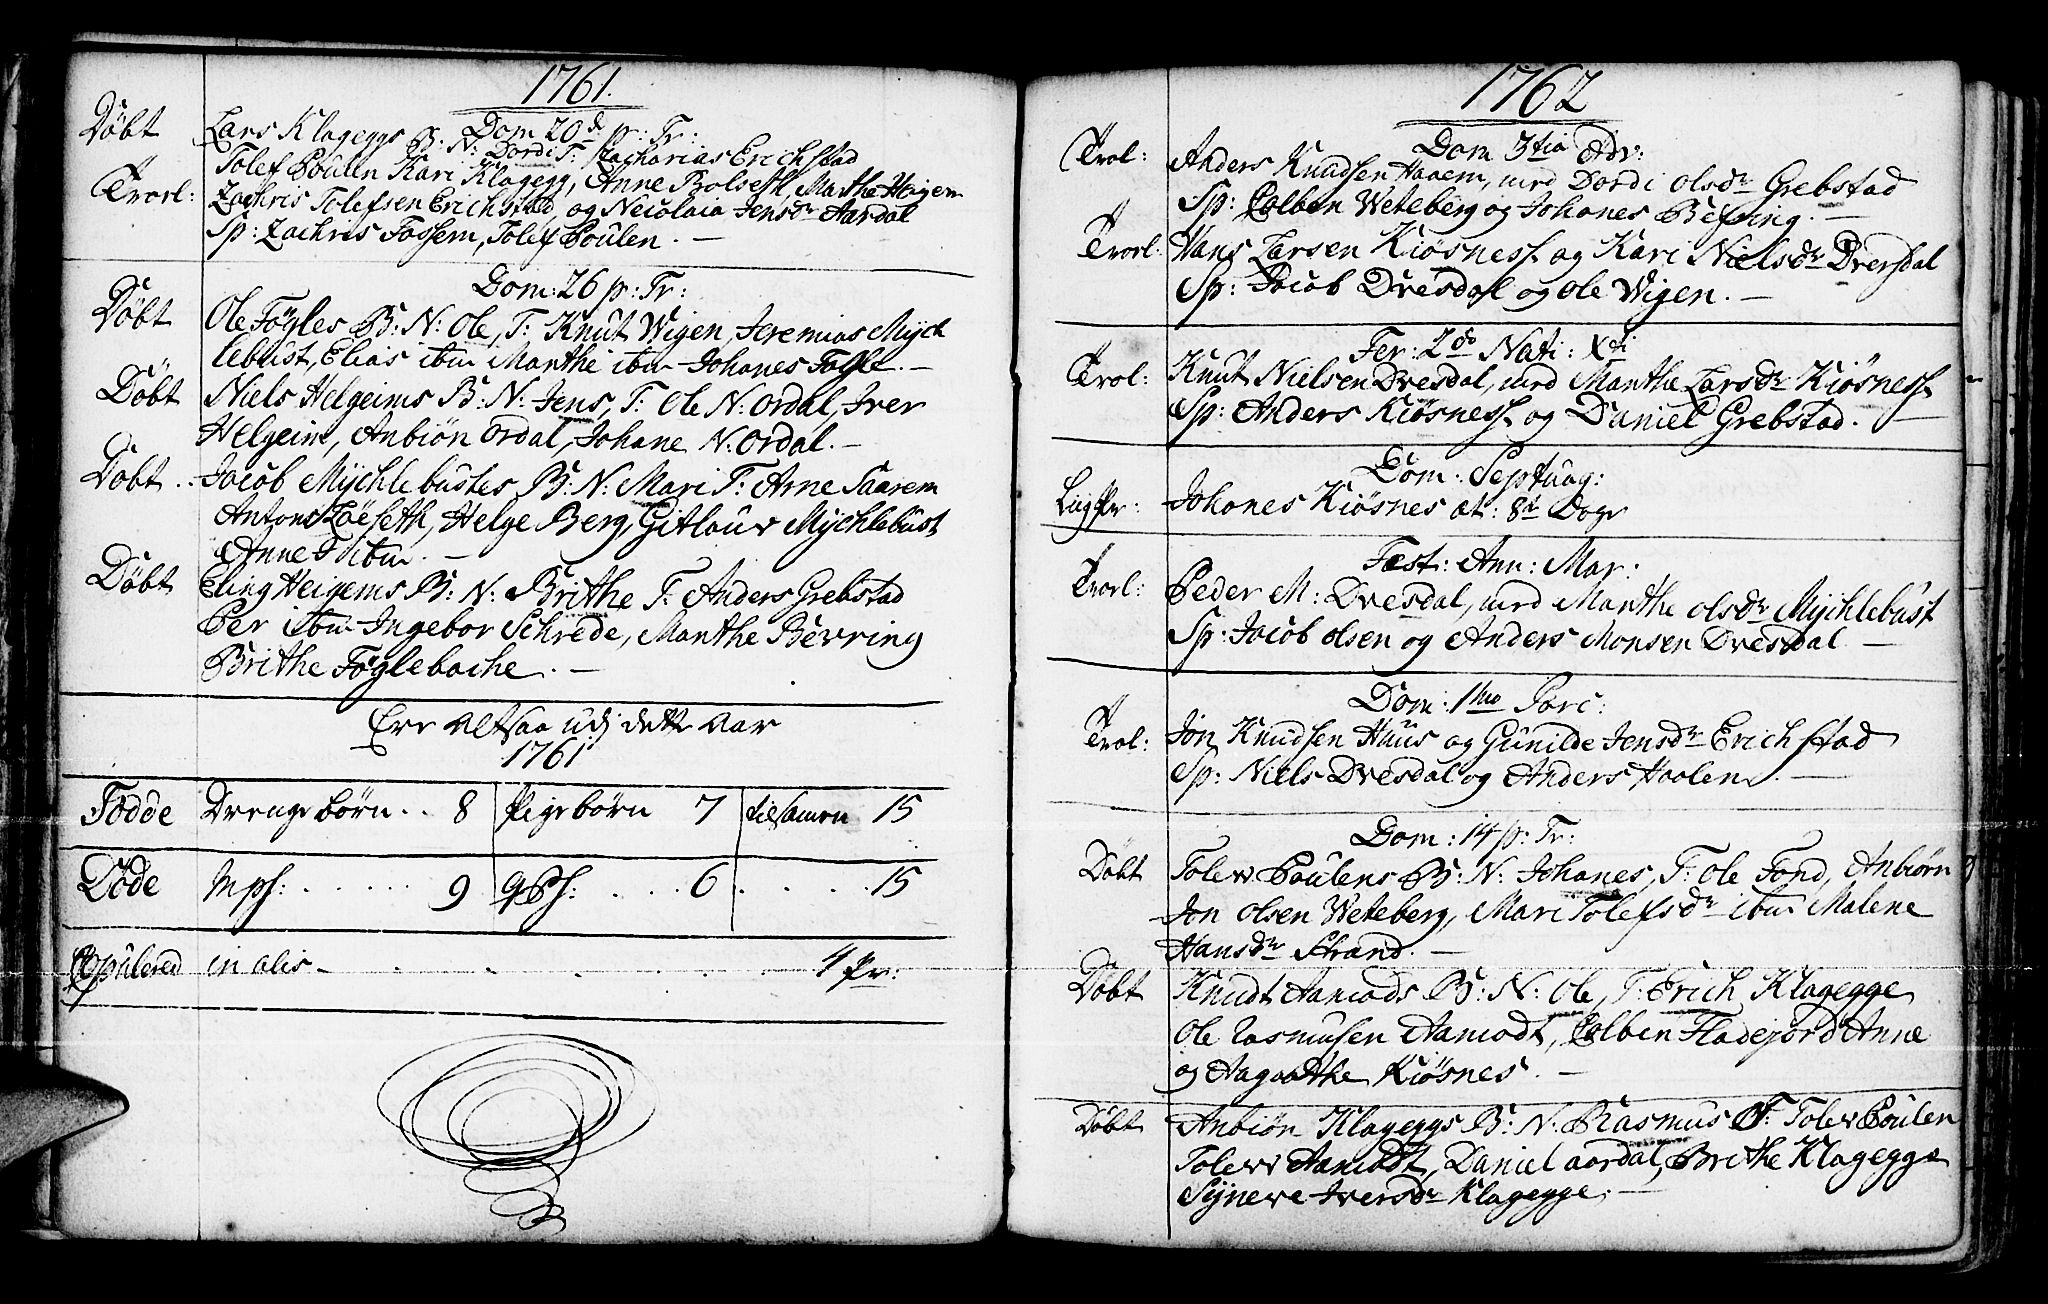 1761.
Dom 20de p: Tr:
Döbt Lars Klageggs B: N: Dordi T: Zacharias Erichstad
Tolef Poulen Kari Klagegg, Anne Bolseth, Marthe Heigem
Trorl: Zachris Tolefsen Erichstad, og Nicolaia Jensdr Aardal
Sp: Zachris Fossem, Tolef Poulen. —
Dom: 26 p: Tr:
Döbt Ole Fögles B: N: Ole, T: Knut Wigen, Jeremias Mÿch
lebust, Elias ibm Marthe ibm Johanes Fogle. —
Döbt Niels Helgeims B: N: Jens, T: Ole N: Ordal, Iver
Helgeim, Anbiön Ordal, Johane N: Ordal. —
Döbt Jacob Mÿchlebustes B: N: Mari T: Arne Saarem
Antons Löeseth, Helge Berg, Gitlaur Mÿchlebust
Anne ibm. —
Döbt Eling Heigems B: N: Brithe T: Anders Grebstad
Per ibm Ingebor Schrede, Marthe Bevring
Brithe Föglebache. —
Ere altsaa udj dette Aar
1761
Födde Drenge börn .. 8 Pige börn 7 tilsamen 15
Döde Mpsh: ..... 9 qPsh: ... 6 .... 15
Copulered in alis — ..... 4 Pr:
1762
Dom 3tia Adv:
Trol: Anders Knudsen Haaem, med Dordi Olsdr Grebstad
Sp: Colben Weteberg og Johanes Befring. —
Trorl: Hans Larsen Kiösness og Kari Nielsdr Dvergsdal
Sp: Jacob Dvesdal og Ole Wigen. —
Fer: 2do Nati: Xsti
Trol: Knut Nielsen Dvesdal, med Marthe Larsdr Kiösness
Sp: Anders Kiösness og Daniel Grebstad. —
Dom: Septuag:
Ligpr: Johanes Kiösnes æt: 8t Dage
Fest: Ann: Mar:
Trorl: Peder M: Dvesdal, med Marthe Olsdr Mÿchlebust
Sp: Jacob Olsen og Anders Monsen Dvesdal —
Dom: 1ma Pasc:
Trol: Jon Knudsen Huus og Gunilde Jensdr Erichstad
Sp: Niels Dvesdal og Anders Haalen. —
Dom: 14 p: Tr:
Döbt Tolev Poulens B: N: Johanes, T: Ole Fond, Anbiörn
Jon Olsen Weteberg, Mari Tolefsdr ibm Malene
Hansdr Strand. —
Döbt Knudt Aamods B: N: Ole, T: Erich Klagegge
Ole Rasmusen Aamodt, Colben Fladejord Anne
og Aagaathe Kiösnes. —
Döbt Anbiön Klageggs B: N: Rasmus T: Tolev Poulen
Tolev Aamodt, Daniel Aardal, Brithe Klagegge
Sÿneve Iversdr Klagegge. —